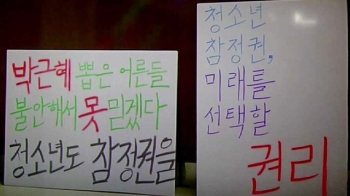 박근혜 뽑은 어른들
불안해서 못 믿겠다
청소년도 참정권을
청소년
참정권,
미래를
선택할
권리